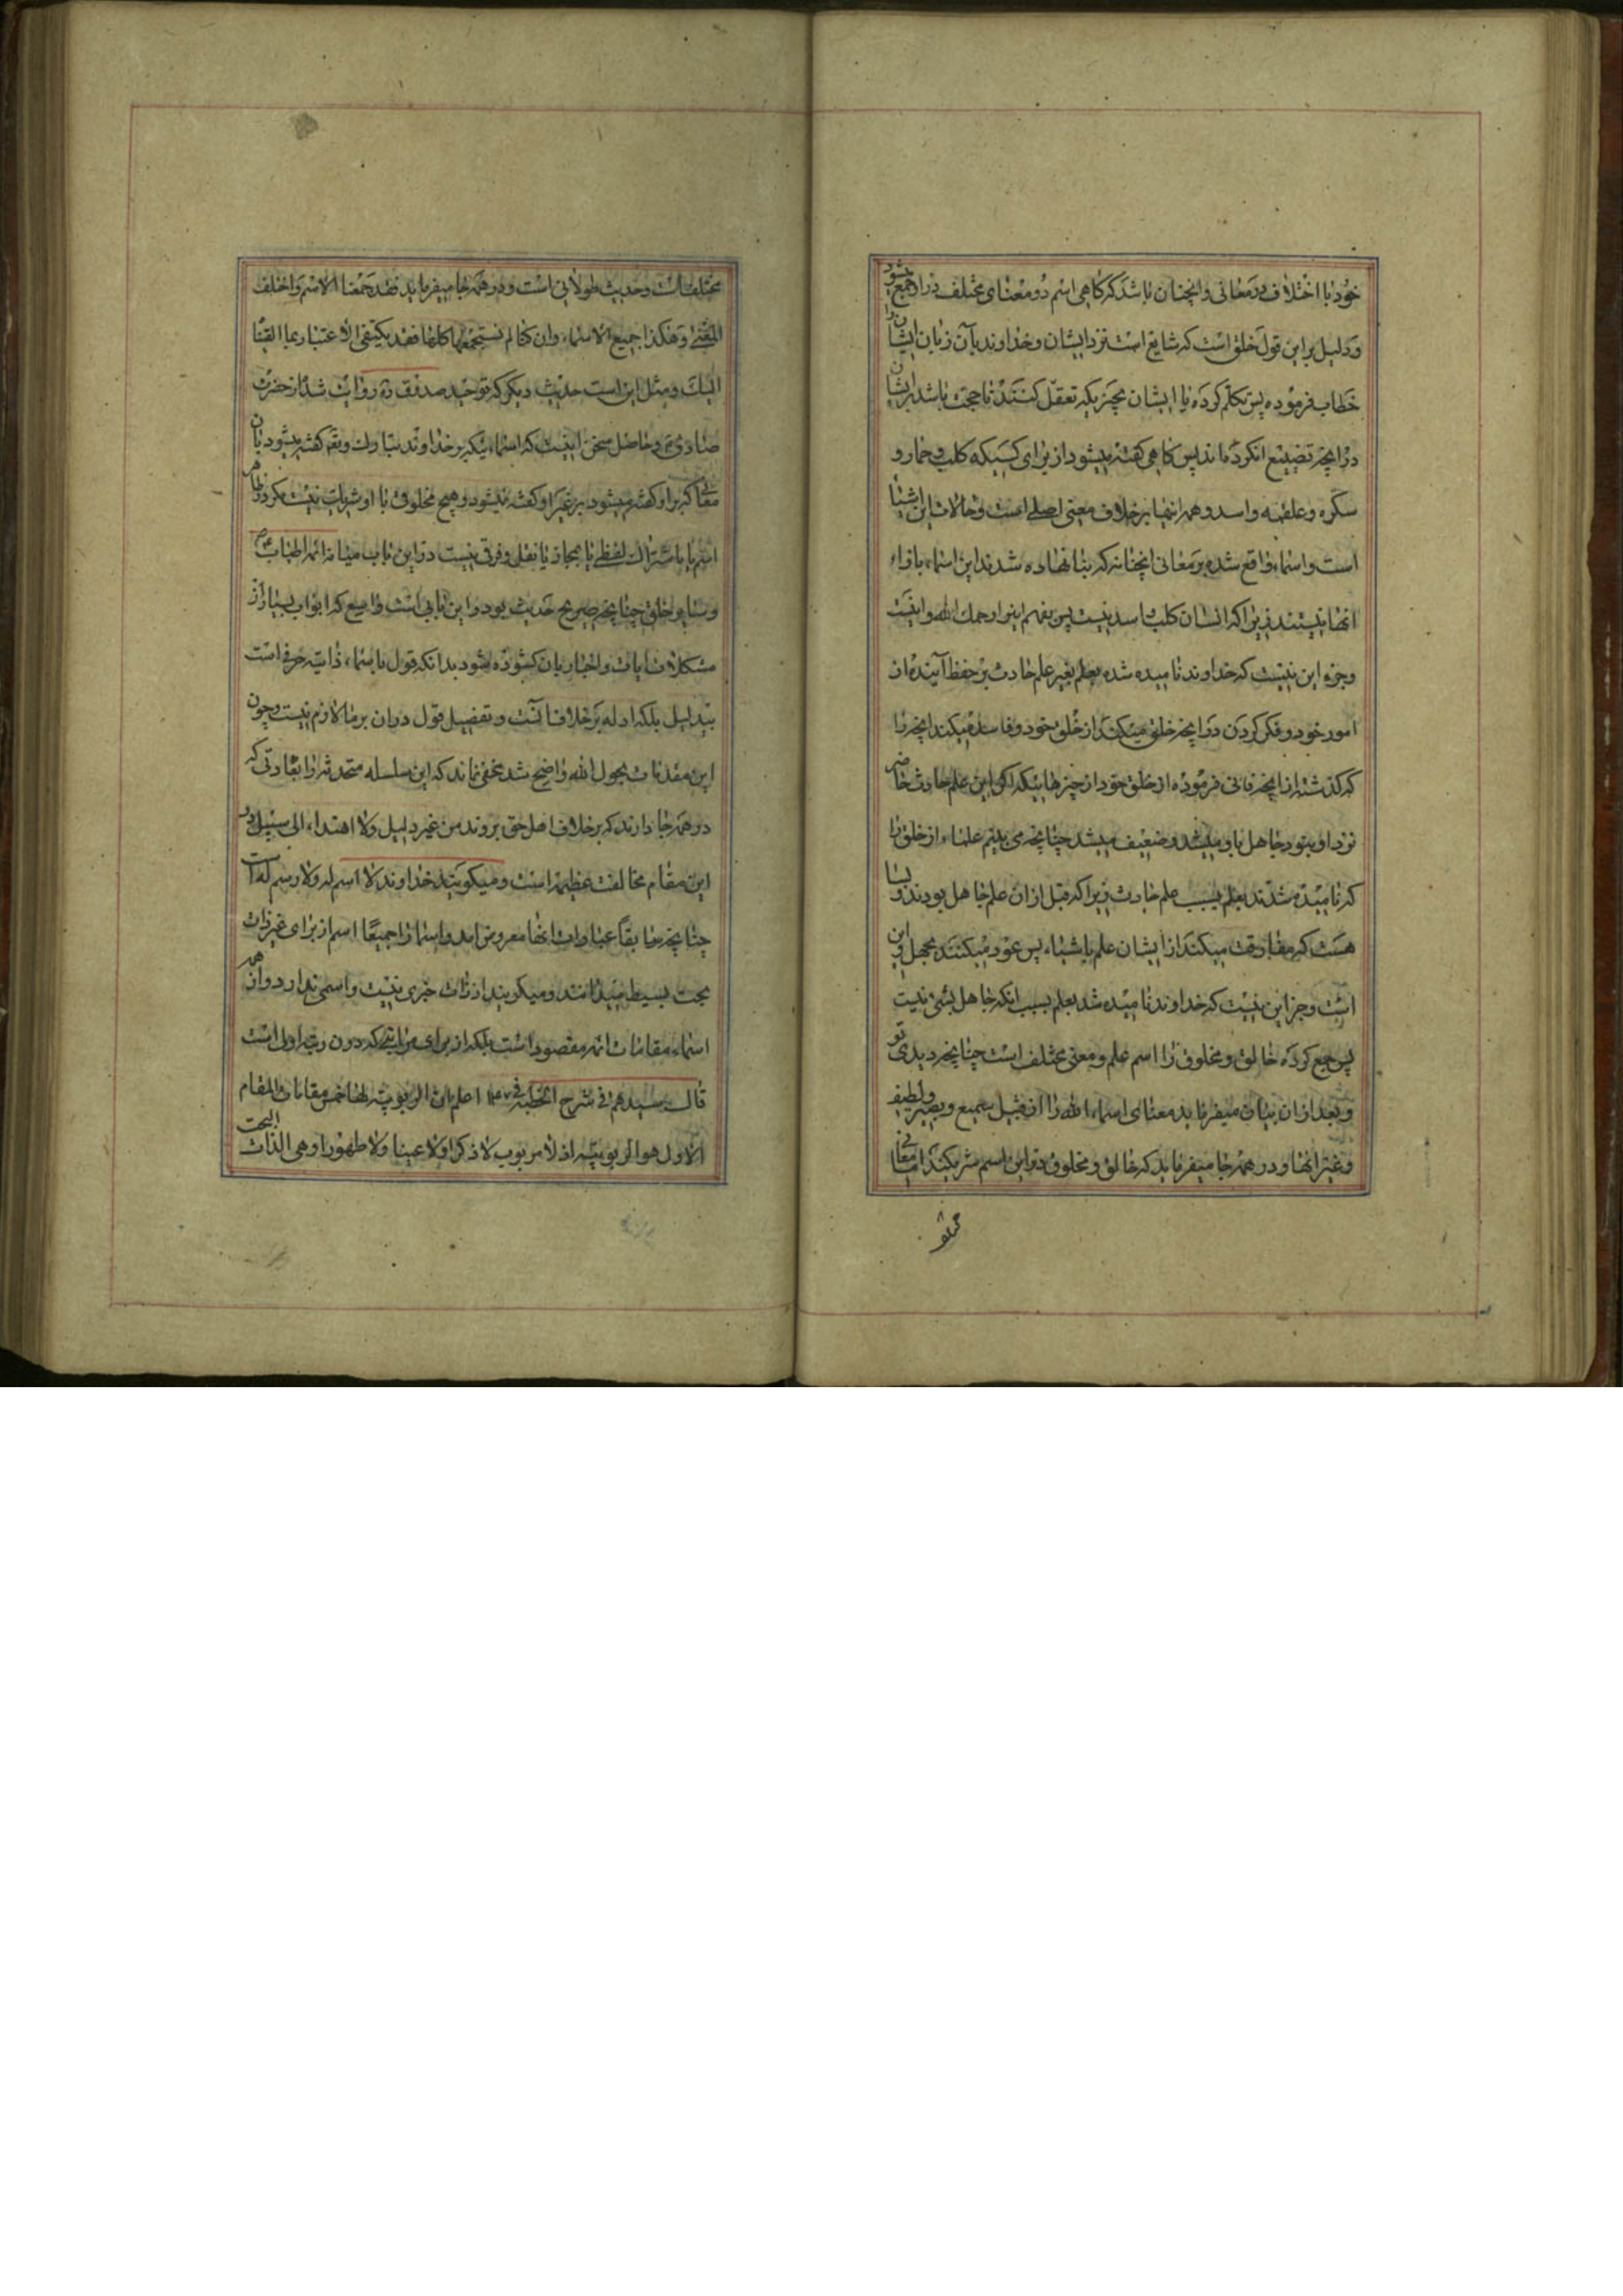 خود با اختلاف در معانی و انچنان باشد که کاهی اسم دو معنای مختلف در او جمع بشود
و دلیل بر این قول خلق است که شایع است نزد ایشان و خداوند بآن زبان ایشان را
خطاب فرموده پس تکلم کرده با ایشان بچیزیکه تعقل کنند تا حجت باشد بر ایشان
در انچه تضییع انکرده اند پس کاهی کفته میشود از برای کسیکه کلب و حمار و
سکره و علقمه و اسد و همه اینها بر خلاف معنی اصلی است و حالات این اشیا
است و اسماء واقع شده بر معانی انچنانه که بنا نهاده شدند این اسماء بازاء
انها نیستند زیرا که انسان کلب و اسد نیست پس بفهم اینرا رحمك الله و اینست
و جز این نیست که خداوند نامیده شده بعلم بغیر علم حادث بر حفظ آینده از
امور خود و فکر کردن در انچه خلق میکند از خلق خود و فاسد میکند انچه را
که کذشته از انچه فانی فرموده از خلق خود از چیزهائیکه اکر این علم حادث حاضر
نزد او نبود جاهل باو میشد و ضعیف میشد چنانچه می بینیم علماء از خلق را
که نامیده شدند بعلم بسبب علم حادث زیرا که قبل از ان علم جاهل بودند و بسا
هست که مفارقت میکند از ایشان علم باشیاء پس عود میکنند بجهل و این
است و جز این نیست که خداوند نامیده شد بعلم بسبب انکه جاهل بشئ نیست
پس جمع کرده خالق و مخلوق را اسم علم و معنی مختلف است چنانچه دیدی تو
و بعد از ان بیان میفرماید معنای اسماء الله را از قبیل سمیع و بصیر و لطیف
و غیر انها و در همه جا میفرماید که خالق و مخلوق در این اسم شریکند اما معانی
مختلف
مختلف است و حدیث طولانی است و در همه جا میفرماید فقد جمعنا الاسم و اختلف
المعنی و هکذا جمیع الاسماء وان کنا لم نستجمعها کلها فقد یکتفی الاعتبار بما القینا
الیك و مثل این است حدیث دیکر که توحید صدوق ره روایت شد از حضرت
صادق ع و حاصل سخن اینست که اسماء نیکه بر خداوند تبارك و تع کفته میشود بان
معانی که بر او کفته میشود بر غیر او کفته نمیشود و هیچ مخلوق با او شریك نیست مکر در ظاهر
اسم یا باشتراك لفظی یا مجاز یا نقل و فرقی نیست در این باب میانه ائمه اطیاب ع
و سایر خلق چنانچه صریح حدیث بود و این بابی است واسع که ابواب بسیار از
مشکلات ایات و اخبار بان کشوده شود بدانکه قول باسماء ذاتیه حرفی است
بیدلیل بلکه ادله بر خلاف آنست و تفصیل قول در ان بر ما لازم نیست و چون
این مقدمات بحول الله واضح شد مخفی نماند که این سلسله متحدثه را بعادتی که
در همه جا دارند که بر خلاف اهل حق بروند من غیر دلیل ولا اهتداء الی سبیل در
این مقام مخالفت عظیمه است و میکویند خداوند لا اسم له ولا رسم له است
چنانچه سابقا عبارات انها معروض امد و اسماء را جمیعًا اسم از برای غیر ذات
بحت بسیط میدانند و میکویند از ذات خبری نیست و اسمی ندارد و از همه
اسماء مقامات ائمه مقصود است بلکه از برای مراتبی که دون رتبه اول است
قال سیدهم فی شرح الخطبة فی اعلم ان الربوبیة لها خمس مقامات المقام
الاول هو الربوبیة اذ لا مربوب لا ذکرا ولا عینا ولا ظهورا و هی الذات البحت